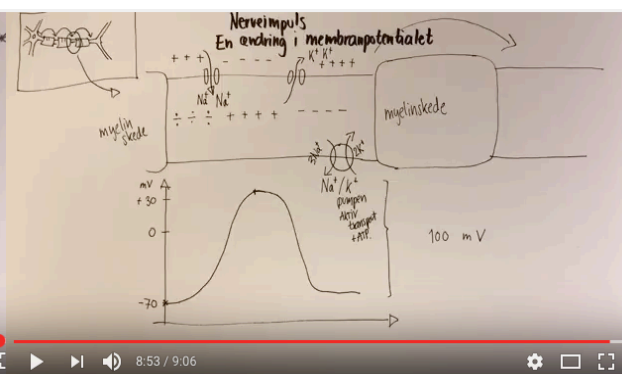 Nerveimpuls
En ændring i membranpotentialet
+ + + - - - - K⁺ K⁺ + + + +
Na⁺ Na⁺
÷ ÷ ÷ + + + + - - - -
myelin
skede
myelinskede
3Na⁺ 2K⁺
Na⁺/K⁺
pumpen
Aktiv
transport
+ATP.
mV
+30
0
-70
100 mV
8:53 / 9:06